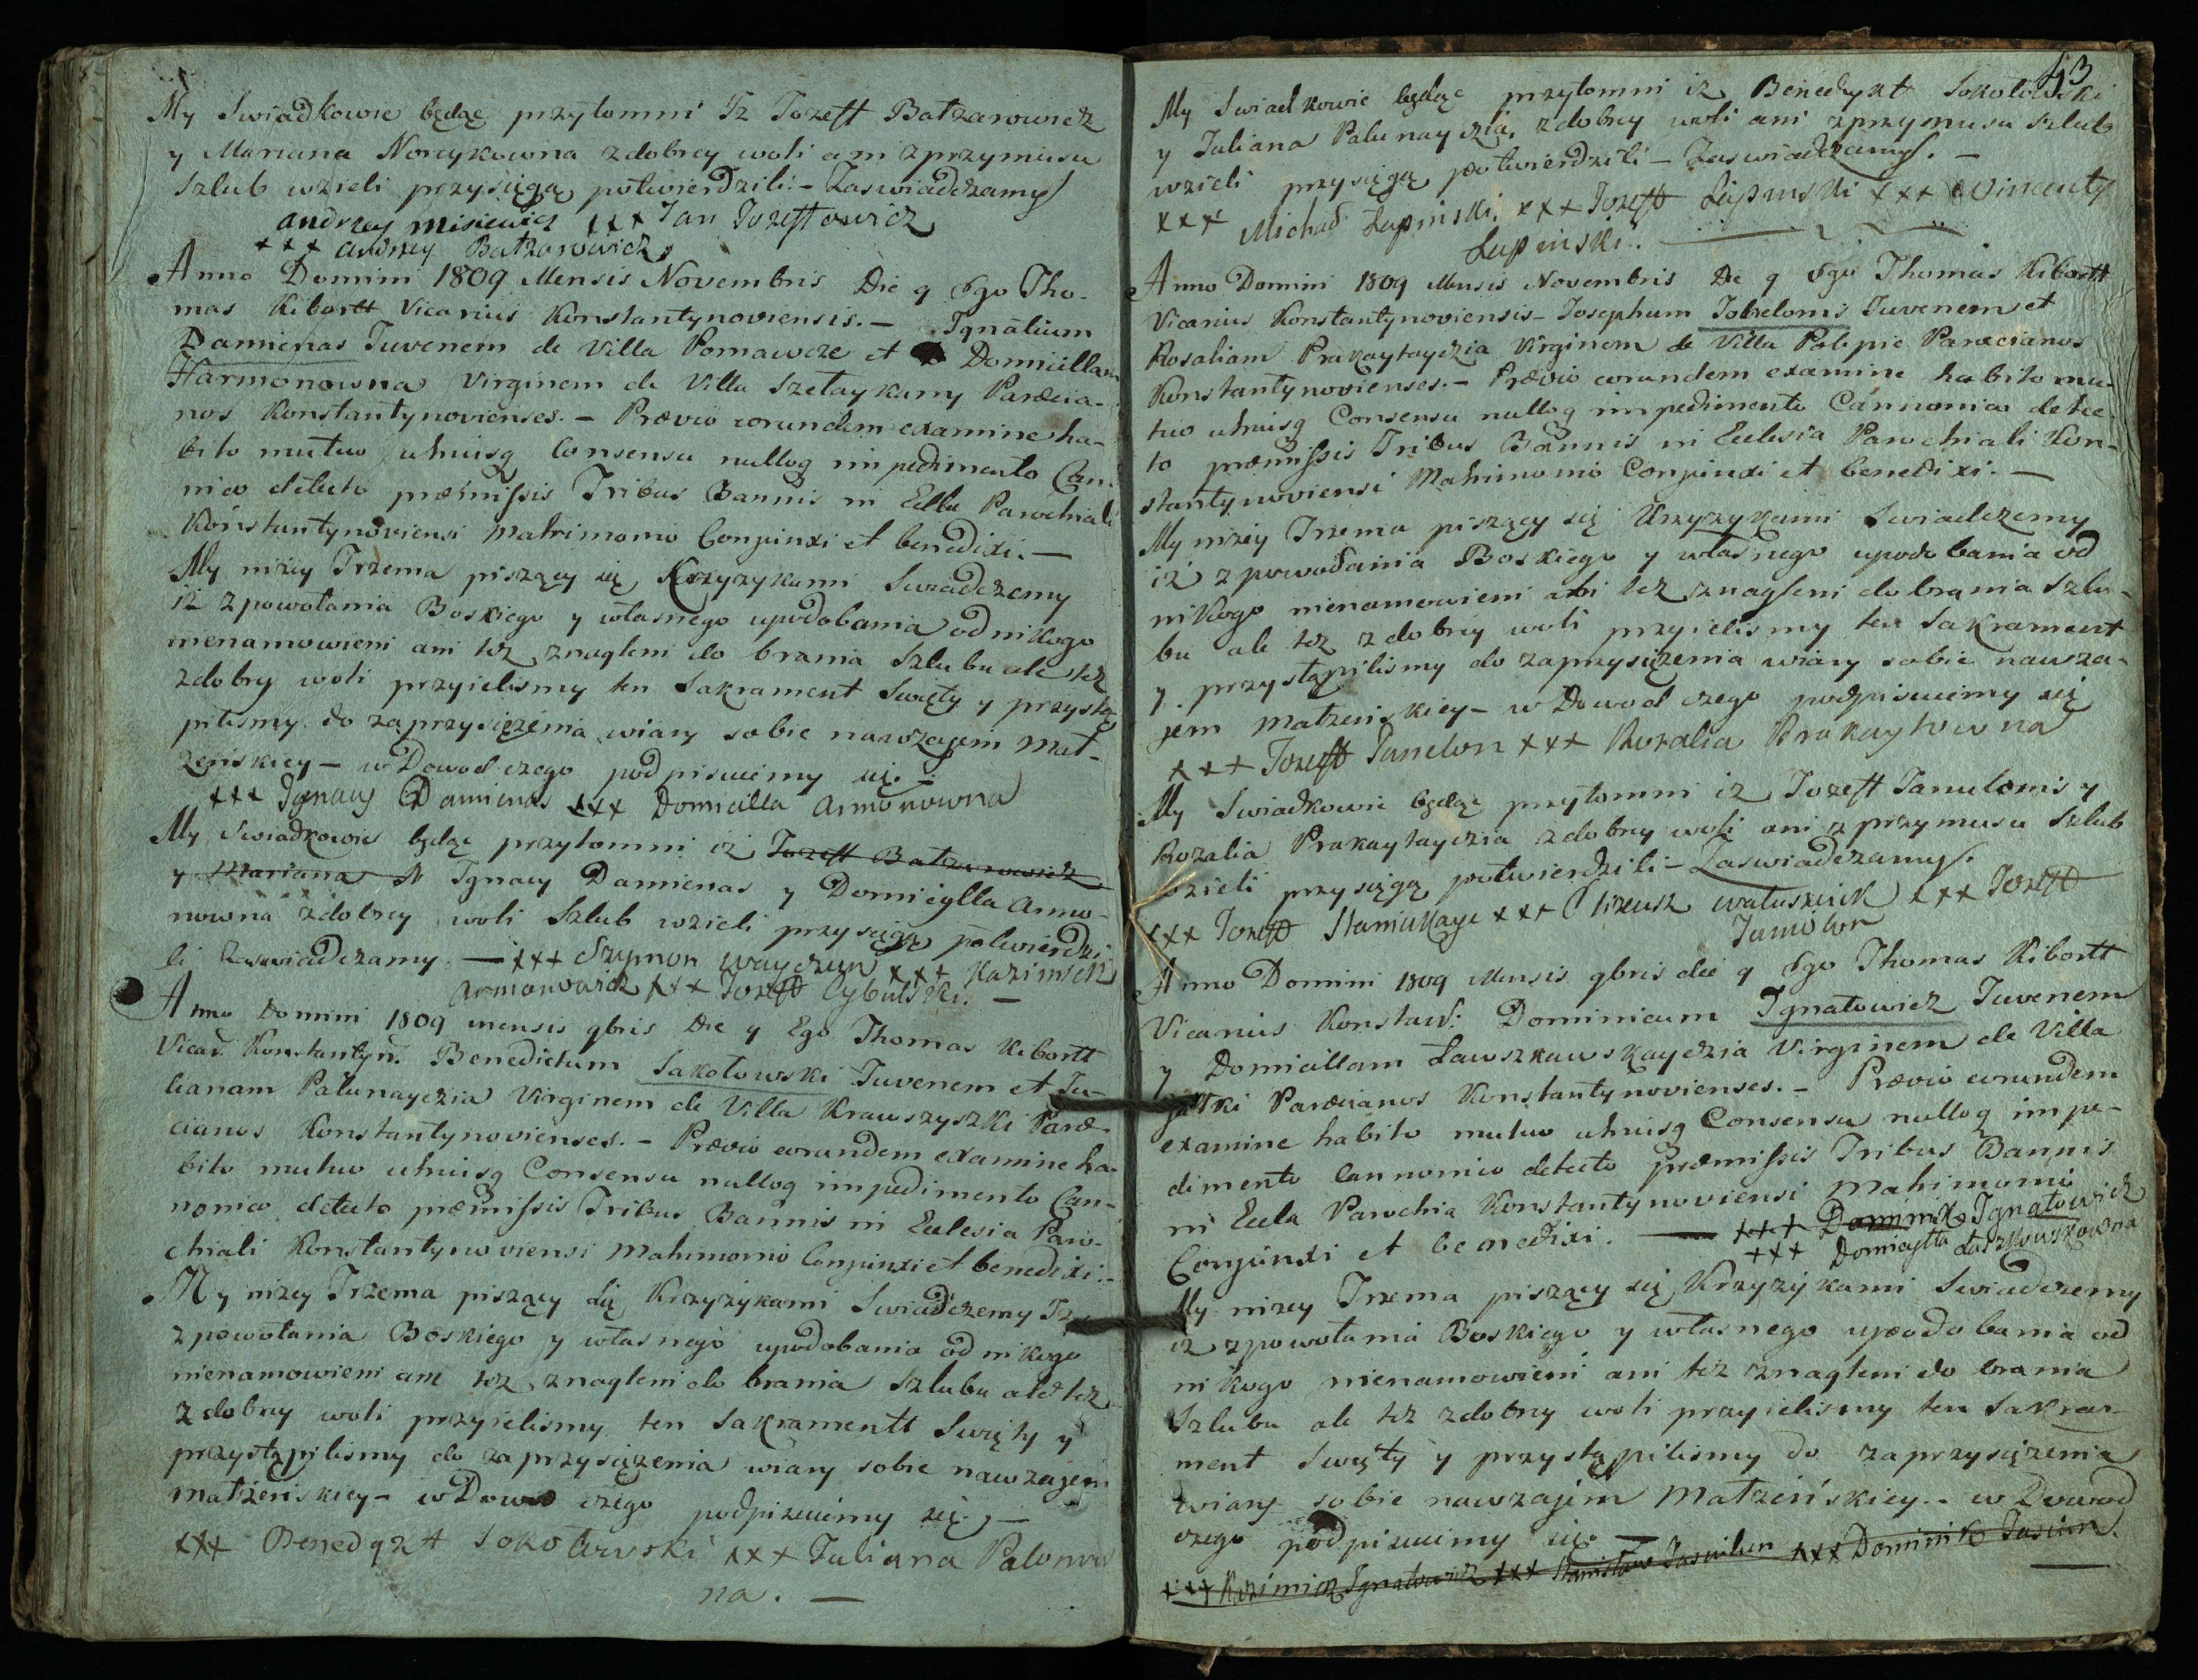 My Swiadkowie będąc przytomni Iz Jozeff Batzarowicz
y Mariana Norcykowna z dobrey woli ani z przymusu
Szlub wzieli przysięgą potwierdzili - Zaswiadczamy
andrzey misiewicz xxx Jan Jozeffowicz
xxx andrzey Batzarowicz
Anno Domini 1809 Mensis Novembris Die 9 Ego Tho-
mas Kibortt Vicarius Konstantynoviensis. - Ignatium
Damienas Juvenem de Villa Pomawcze et Domicillam
Harmonowna Virginem de Villa Szetaykany Paraecia-
nos Konstantynovienses. - Praevio eorundem examine ha-
bito mutuo utriusq Consensu nulloq impedimento Can-
nico detecto praemissis Tribus Bannis in Ecclia Parochiali
Konstantynoviensi Matrimonio Conjunxi et benedixi. -
My niżey Trzema piszący się Krzyzykami Swiadczemy
iż z powołania Boskiego y własnego upodobania od nikogo
nienamowieni ani też znagleni do brania Szlubu ale też
z dobry woli przyielismy ten Sakrament Swięty y przystą
pilismy do zaprzysiężenia wiary sobie nawzajem Mał-
żeńskiey - w Dowod czego podpisuiemy się. -
xxx Ignacy Damienas xxx Domicilla armonowna
My Swiadkowie będąc przytomni iż Jozeff Batzarowicz
y Mariana N Ignacy Damienas y Domicylla Armo-
nowna z dobrey woli Szlub wzieli przysięgą potwierdzi
li Zaswiadczamy - xxx Szymon Wayczun xxx Kazimierz
armonowicz xxx Jozeff Cybulski. -
Anno Domini 1809 mensis 9bris Die 9 Ego Thomas Kibortt
Vicar. Konstantyn. Benedictum Sakołowski Juvenem et Ju-
lianam Pałunayczia Virginem de Villa Krawszyszki Parae-
cianos Konstantynovienses. - Praevio eorundem examine ha-
bito mutuo utriusq Consensu nulloq impedimento Can-
nonico detecto praemissis Tribus Bannis in Ecclesia Paro-
chiali Konstantynoviensi Matrimonio Conjunxi et benedixi. -
My nizey Trzema piszący się Krzyzykami Swiadczemy Iz
z powołania Boskiego y własnego upodobania od nikogo
nienamowieni ani też znagleni do brania Szlubu ale też
z dobry woli przyielismy ten Sakramentt Swięty y
przystąpilismy do zaprzysiężenia wiary sobie nawzajem
małżenskiey - w Dowod czego podpisuiemy się, -
xxx Benedqxt Sokołowski xxx Juliana Palonow
na. -
43
My Swiadkowie będąc przytomni iz Benedykt Sokołowski
y Juliana Palunayczia, z dobrey woli ani z przymusu szlub
wzieli przysięgą potwierdzili - Zaswiadczamy. -
xxx Michał Łapinski, xxx Jozeff Łapinski xxx Wincenty
Łapinski.
Anno Domini 1809 Mensis Novembris Die 9 Ego Thomas Kibortt
Vicarius Konstantynoviensis - Josephum Juvenem et
Rosaliam Prakaytayczia Virginem de Villa Polepie Paraecianos
Konstantynovienses. - Praevio eorundem examine habito mu-
tuo utriusq Consensu nulloq impedimento Cannonico detec
to praemissis Tribus Bannis in Ecclesia Parochiali Kon-
stantynoviensi Matrimonio Conjunxi et benedixi. -
My nizey Trzema piszący się Krzyzykami Swiadczemy
iż z powołania Boskiego y własnego upodobania od
nikogo nienamowieni ani też znagleni do brania Szlu-
bu ale też z dobry woli przyielismy ten Sakrament
y przystąpilismy do zaprzysiężenia wiary sobie nawza-
jem małżenskiey - w Dowod czego podpisuiemy się
xxx Jozeff xxx Rozalia Prakaytowna
My Swiadkowie będąc przytomni iz Jozeff y
Rozalia Prakaytayczia z dobrey woli ani z przymusu Szlub
wzieli przysięgą potwierdzili - Zaswiadczamy.
xxx Jozeff xxx xxx Jozeff
Anno Domini 1809 Mensis 9bris die 9 Ego Thomas Kibortt
Vicarius Konstan: Dominicum Ignatowicz Juvenem
y Domicillam Ławszkawskayczia Virginem de Villa
Paraecianos Konstantynovienses. - Praevio eorundem
examine habito mutuo utriusq Consensu nulloq impe-
dimento Cannonico detecto praemissis Tribus Bannis
in Eccla Parochia Konstantynoviensi Matrimonio
Conjunxi et benedixi. - xxx Dominik Ignatowicz
xxx Domicylla Łaszkowskowna
My nizey Trzema piszący się Krzyzykami Swiadczemy
iz z powołania Boskiego y własnego upodobania od
nikogo nienamowieni ani też znagleni do brania
Szlubu ale też z dobry woli przyielismy ten Sakra-
ment Swięty y przystąpilismy do zaprzysiężenia
wiary sobie nawzajem Małżeńskiey - w Dowod
czego podpisuiemy się -
xxx Kazimierz Ignatowicz xxx Stanisław xxx Dominik